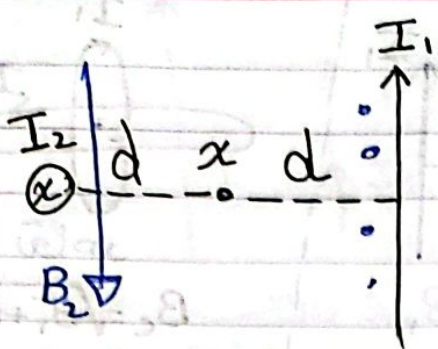 I₁
I₂ d x d
x
B₂